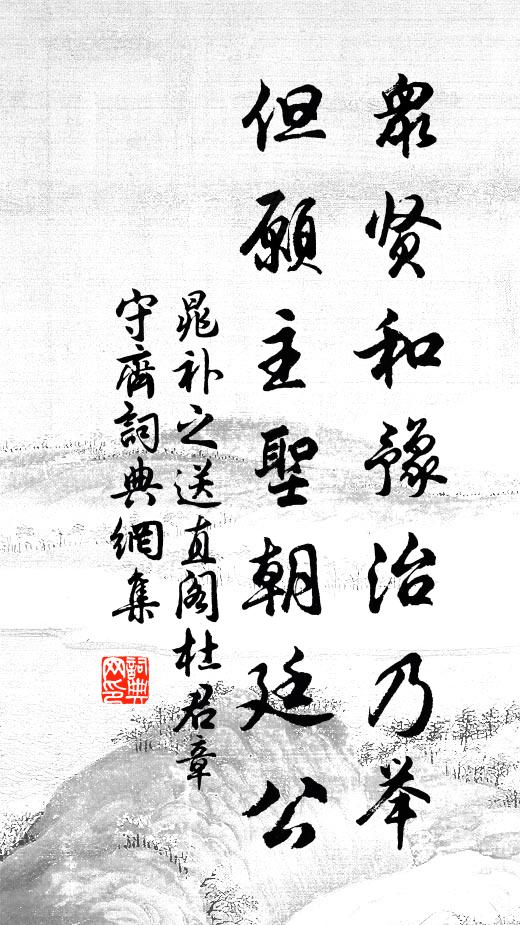 眾贤和豫治乃举
但願主聖朝廷公
晁补之送直阁杜君章
守齋詞典網集
詞典網印